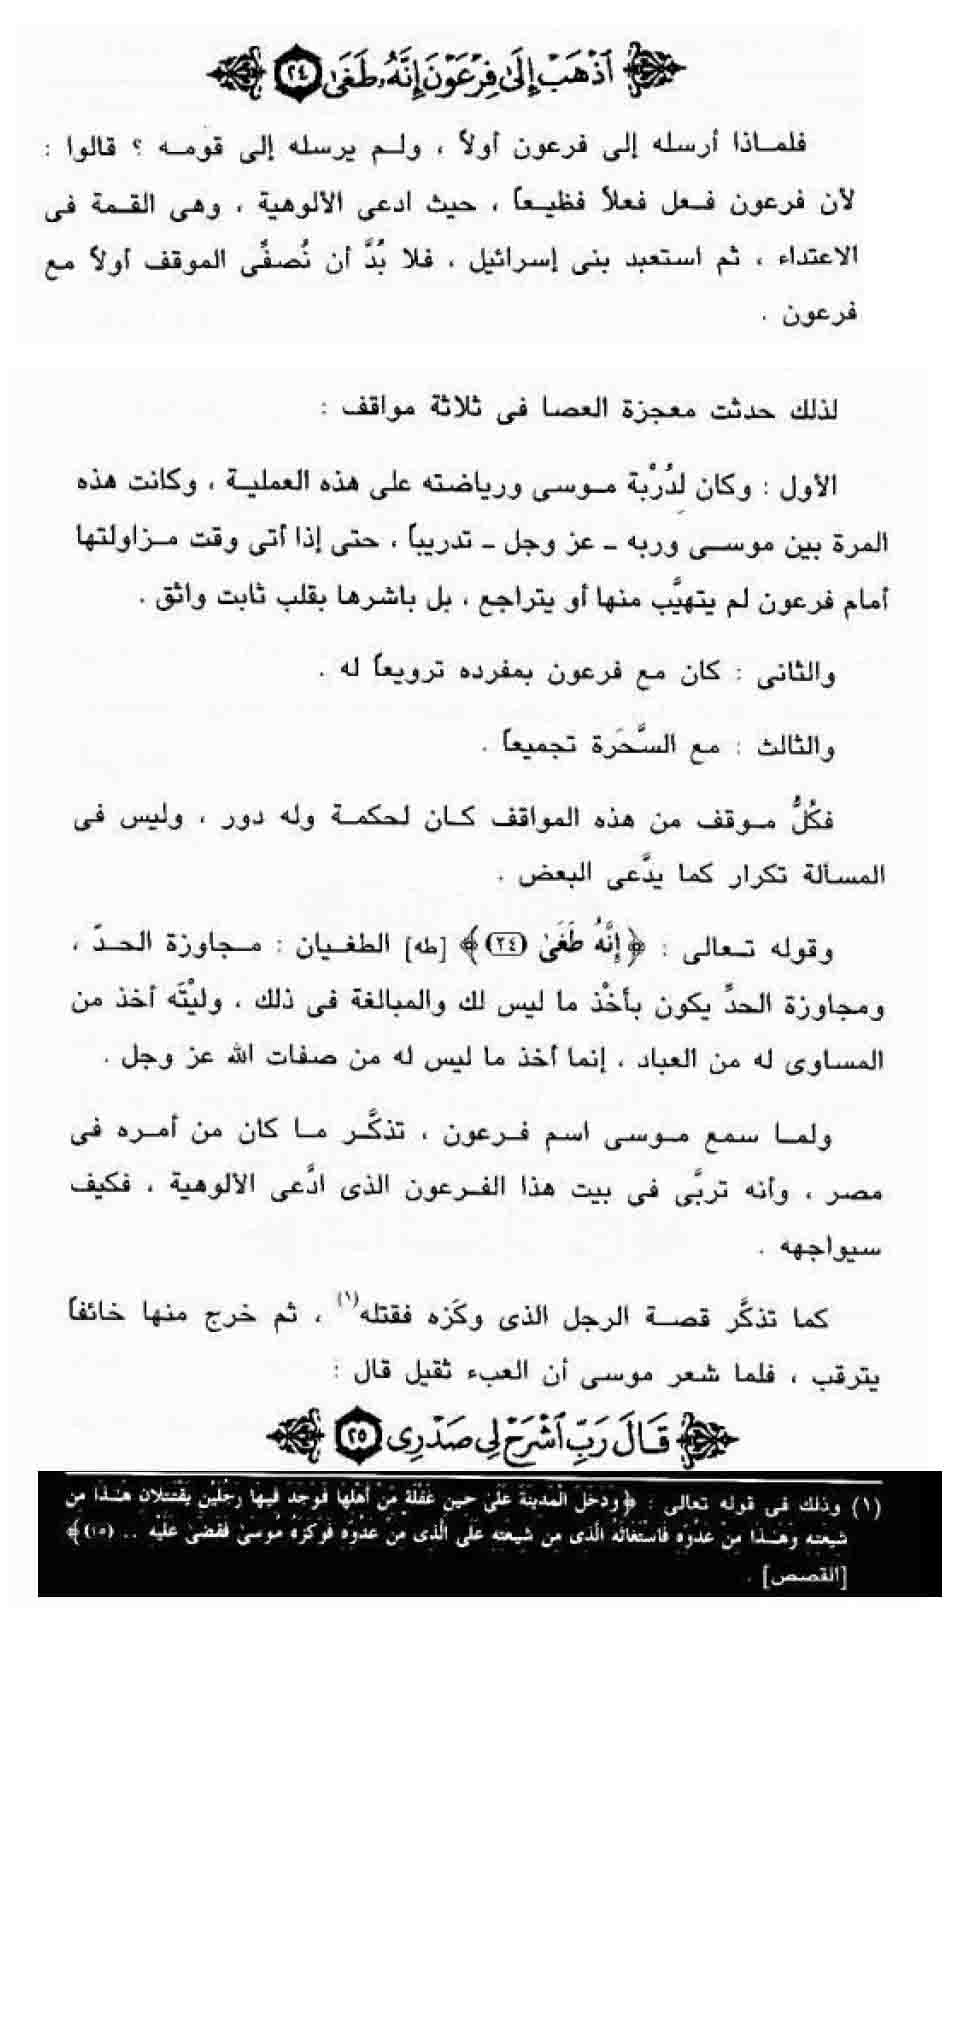 ٱذۡهَبۡ إِلَىٰ فِرۡعَوۡنَ إِنَّهُۥ طَغَىٰ ٢٤
فلمـاذا أرسله إلى فرعون أولاً ، ولـم يرسله إلى قومـه ؟ قالوا :
لأن فرعون فـعل فعلاً فظيـعاً ، حيث ادعى الألوهية ، وهى القـمة فى
الاعتداء ، ثم استعبد بنى إسرائيل ، فلا بُدَّ أن نُصفِّى الموقف أولاً مع
فرعون .
لذلك حدثت معجزة العصا فى ثلاثة مواقف :
الأول : وكان لِدُرْبة مـوسى ورياضته على هذه العملية ، وكانت هذه
المرة بين موسـى وربه ـ عز وجل ـ تدريباً ، حتى إذا أتى وقت مـزاولتها
أمام فرعون لم يتهيَّب منها أو يتراجع ، بل باشرها بقلب ثابت واثق .
والثانى : كان مع فرعون بمفرده ترويعاً له .
والثالث : مع السَّحَرة تجميعاً .
فكُلُّ مـوقف من هذه المواقف كـان لحكمـة وله دور ، وليس فى
المسألة تكرار كما يدَّعى البعض .
وقوله تـعالى : ﴿ إِنَّهُ طَغَىٰ (٢٤) ﴾ [طه] الطغـيان : مـجاوزة الحدّ ،
ومجاوزة الحدِّ يكون بأخْذ ما ليس لك والمبالغة فى ذلك ، وليْتَه أخذ من
المساوى له من العباد ، إنما أخذ ما ليس له من صفات الله عز وجل .
ولمـا سمع مـوسى اسم فـرعون ، تذكَّـر مـا كان من أمـره فى
مصر ، وأنه تربَّى فى بيت هذا الفـرعون الذى ادَّعى الألوهية ، فكيف
سيواجهه .
كما تذكَّر قصـة الرجل الذى وكَزه فقتله(١) ، ثم خرج منها خائفاً
يترقب ، فلما شعر موسى أن العبء ثقيل قال :
قَالَ رَبِّ ٱشۡرَحۡ لِي صَدۡرِي ٢٥
(١) وذلك فى قوله تعالى : ﴿ وَدَخَلَ الْمَدِينَةَ عَلَىٰ حِينِ غَفْلَةٍ مِّنْ أَهْلِهَا فَوَجَدَ فِيهَا رَجُلَيْنِ يَقْتَتِلَانِ هَـٰذَا مِن
شِيعَتِهِ وَهَـٰذَا مِنْ عَدُوِّهِ فَاسْتَغَاثَهُ الَّذِى مِن شِيعَتِهِ عَلَى الَّذِى مِنْ عَدُوِّهِ فَوَكَزَهُ مُوسَىٰ فَقَضَىٰ عَلَيْهِ .. (١٥) ﴾
[القصص] .